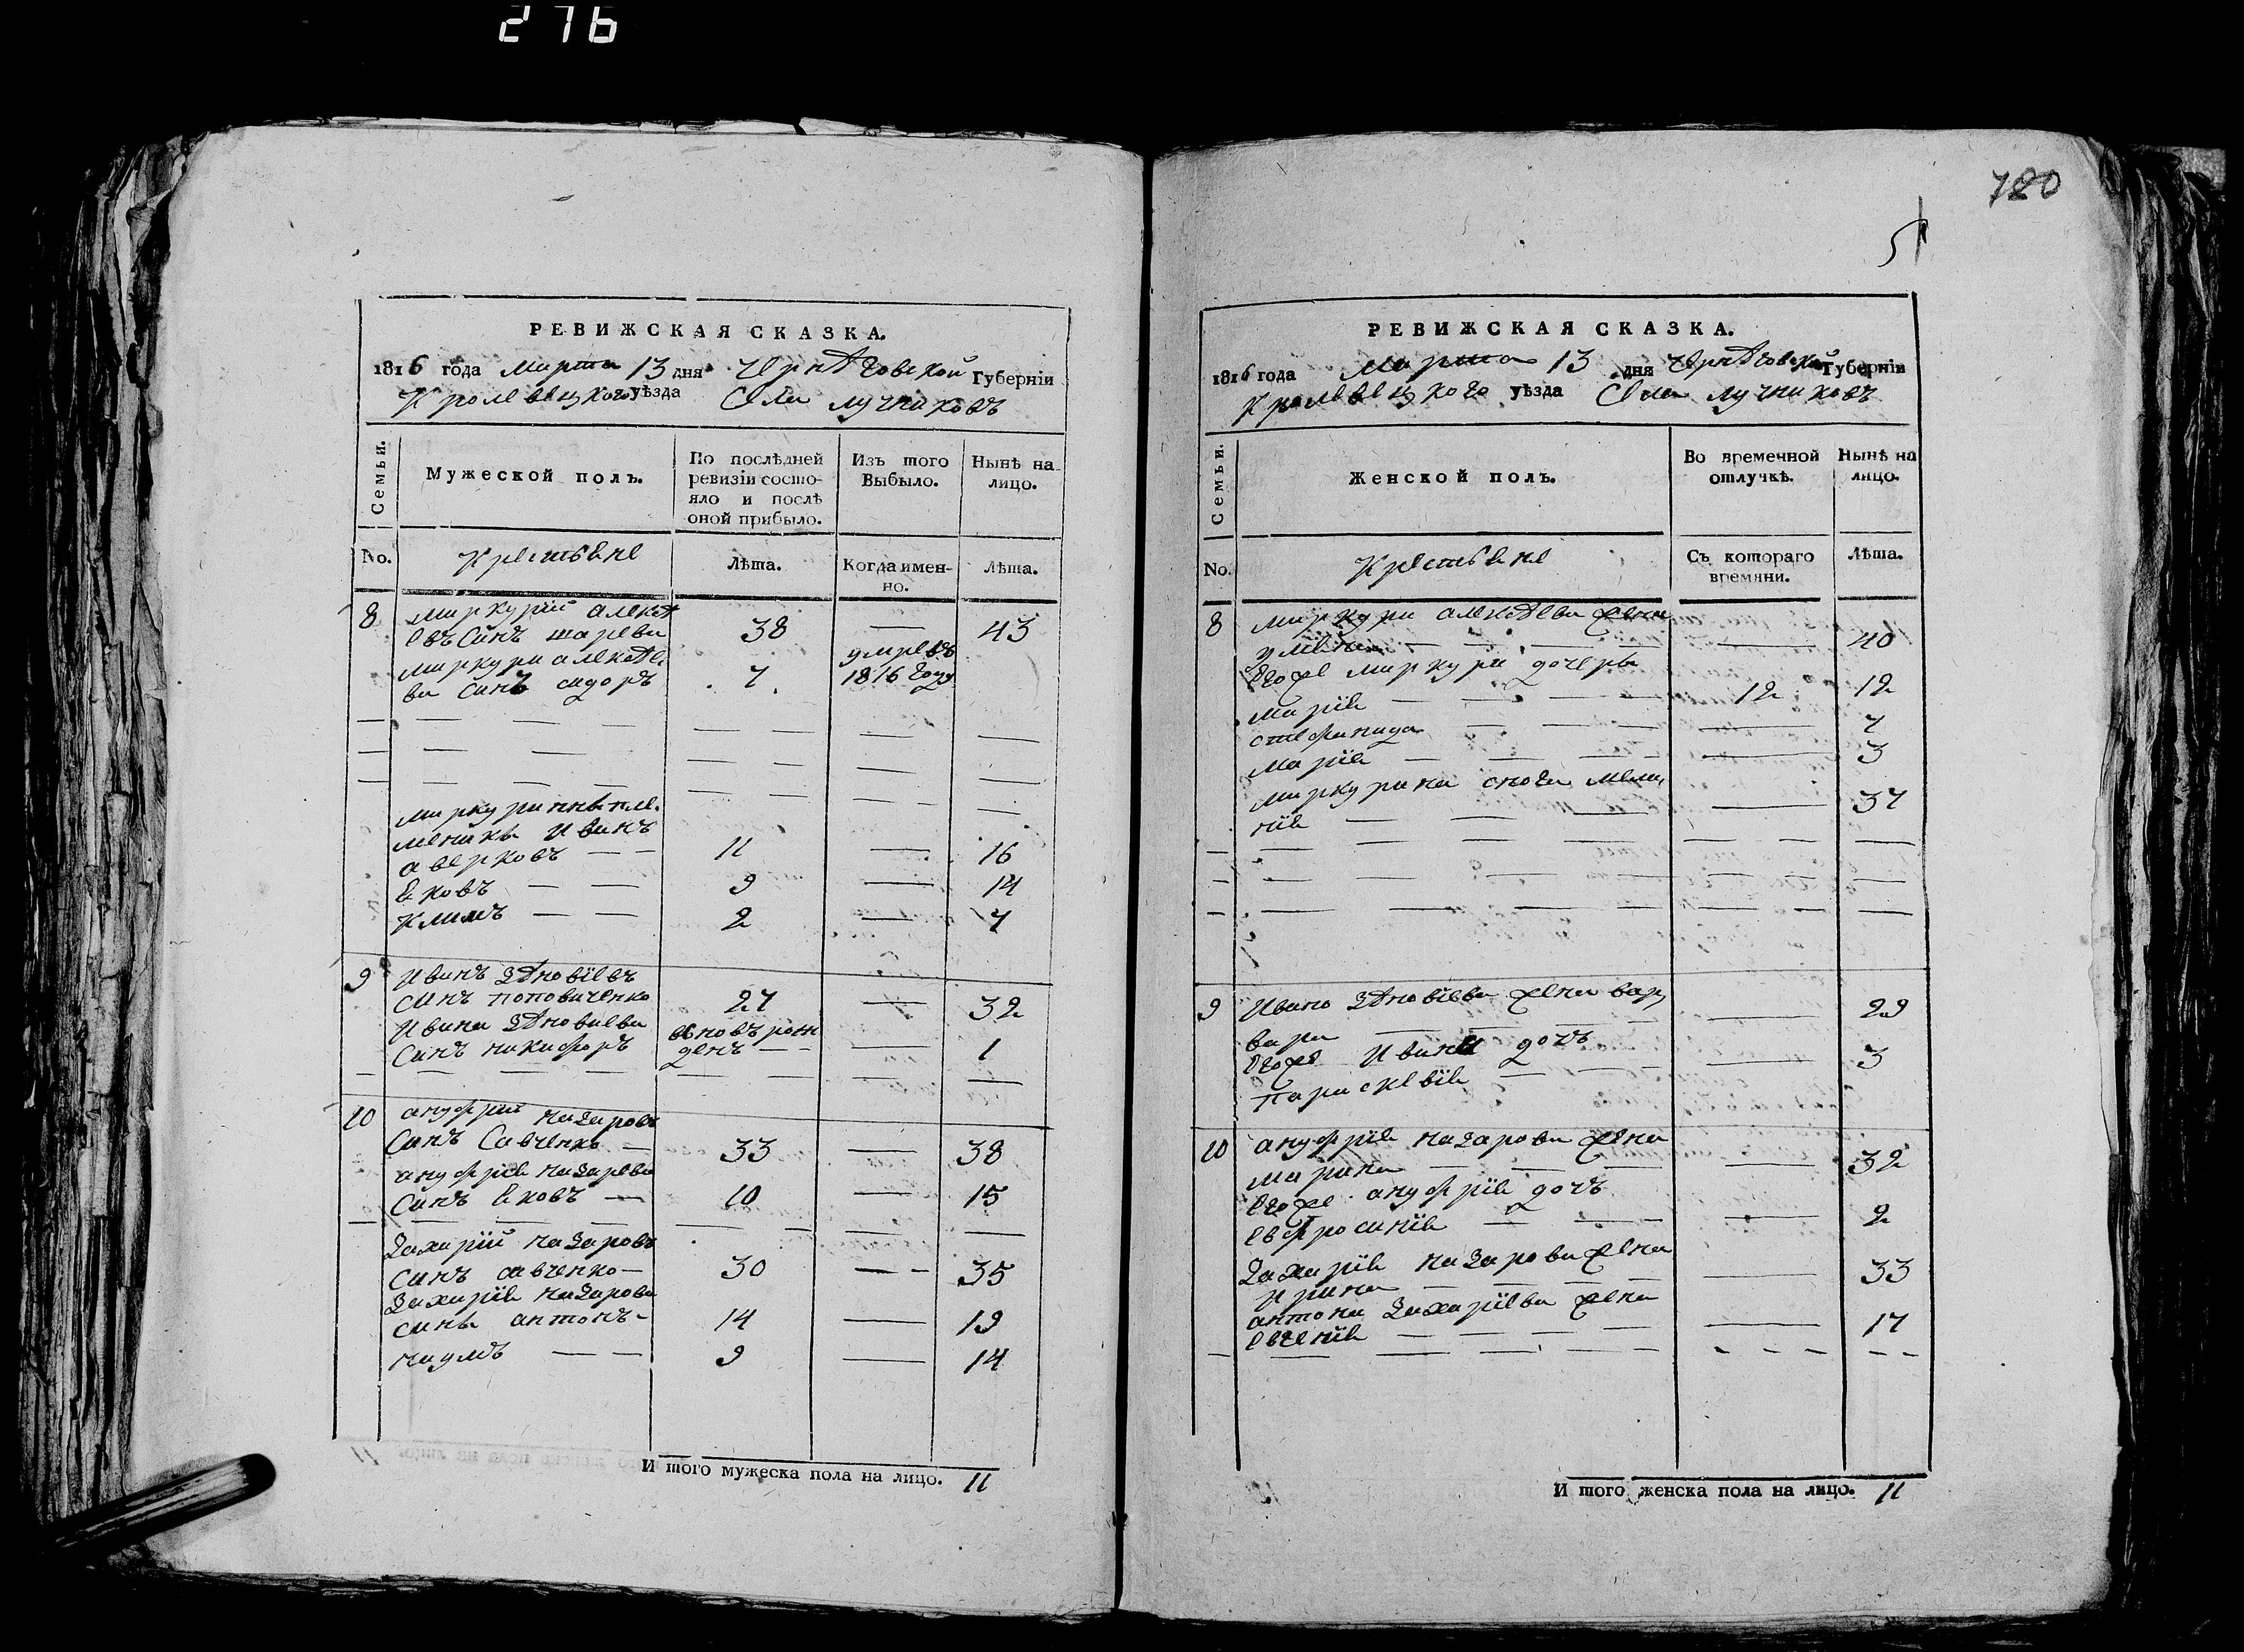 276
РЕВИЖСКАЯ СКАЗКА.
1816 года марта 13 дня Чернѣговской Губернiи
Кролевецкого уѣзда Села лучниковъ
Семьи.
Мужеской полъ.
По послѣдней ревизiи состояло и послѣ оной прибыло.
Изъ того Выбыло.
Нынѣ на лицо.
No.
Крестьяне
Лѣта.
Когда именно.
Лѣта.
8 миркурiй алексѣ
евъ синъ 38 — 43
миркури алексѣе, умре въ
ва синъ сидоръ 7 1816 году
миркури пле,
меники иванъ
аверковъ — — 11 — 16
яковъ — — 9 — 14
климъ — — 2 — 7
9 иванъ зѣновiевъ
синъ поповиченко 27 — 32
ивана зѣновиева вновъ рож
синъ никифоръ денъ — — 1
10 ануфрий назаровъ
синъ савченко — 33 — 38
ануфрiя назарова
синъ яковъ — 10 — 15
Захарiй назаровъ
синъ савченко — 30 — — 35
Захарiя назарова
сини антонъ — 14 — 19
наумъ — — 9 — 14
И того мужеска пола на лицо. 11
780
5
РЕВИЖСКАЯ СКАЗКА.
1816 года марта 13 дня Чернѣговской Губернiи
Кролевецкого уѣзда Села лучниковъ
Семьи.
Женской полъ.
Во временной отлучкѣ.
Нынѣ на лицо.
No.
Крестьяне
Съ котораго времяни.
Лѣта.
8 миркури алексѣева жена
улияна — — — 40
егоже миркури дочери
марiя — — — 12 12
стефанида — — — 7
марiя — — — 3
миркурина снога мела,
нiя — — — 37
9 ивано зѣновiева жена вар,
вара — — — 29
егоже ивана дочъ
парискевiя — — — 3
10 ануфрiя назарова жена
марина — — — 32
егоже ануфрiя дочъ
евфросинiя — — — 2
Захарiя назарова жена
ирина — — — 33
антона Захарiева жена
евгенiя — — — 17
И того женска пола на лицо. 11